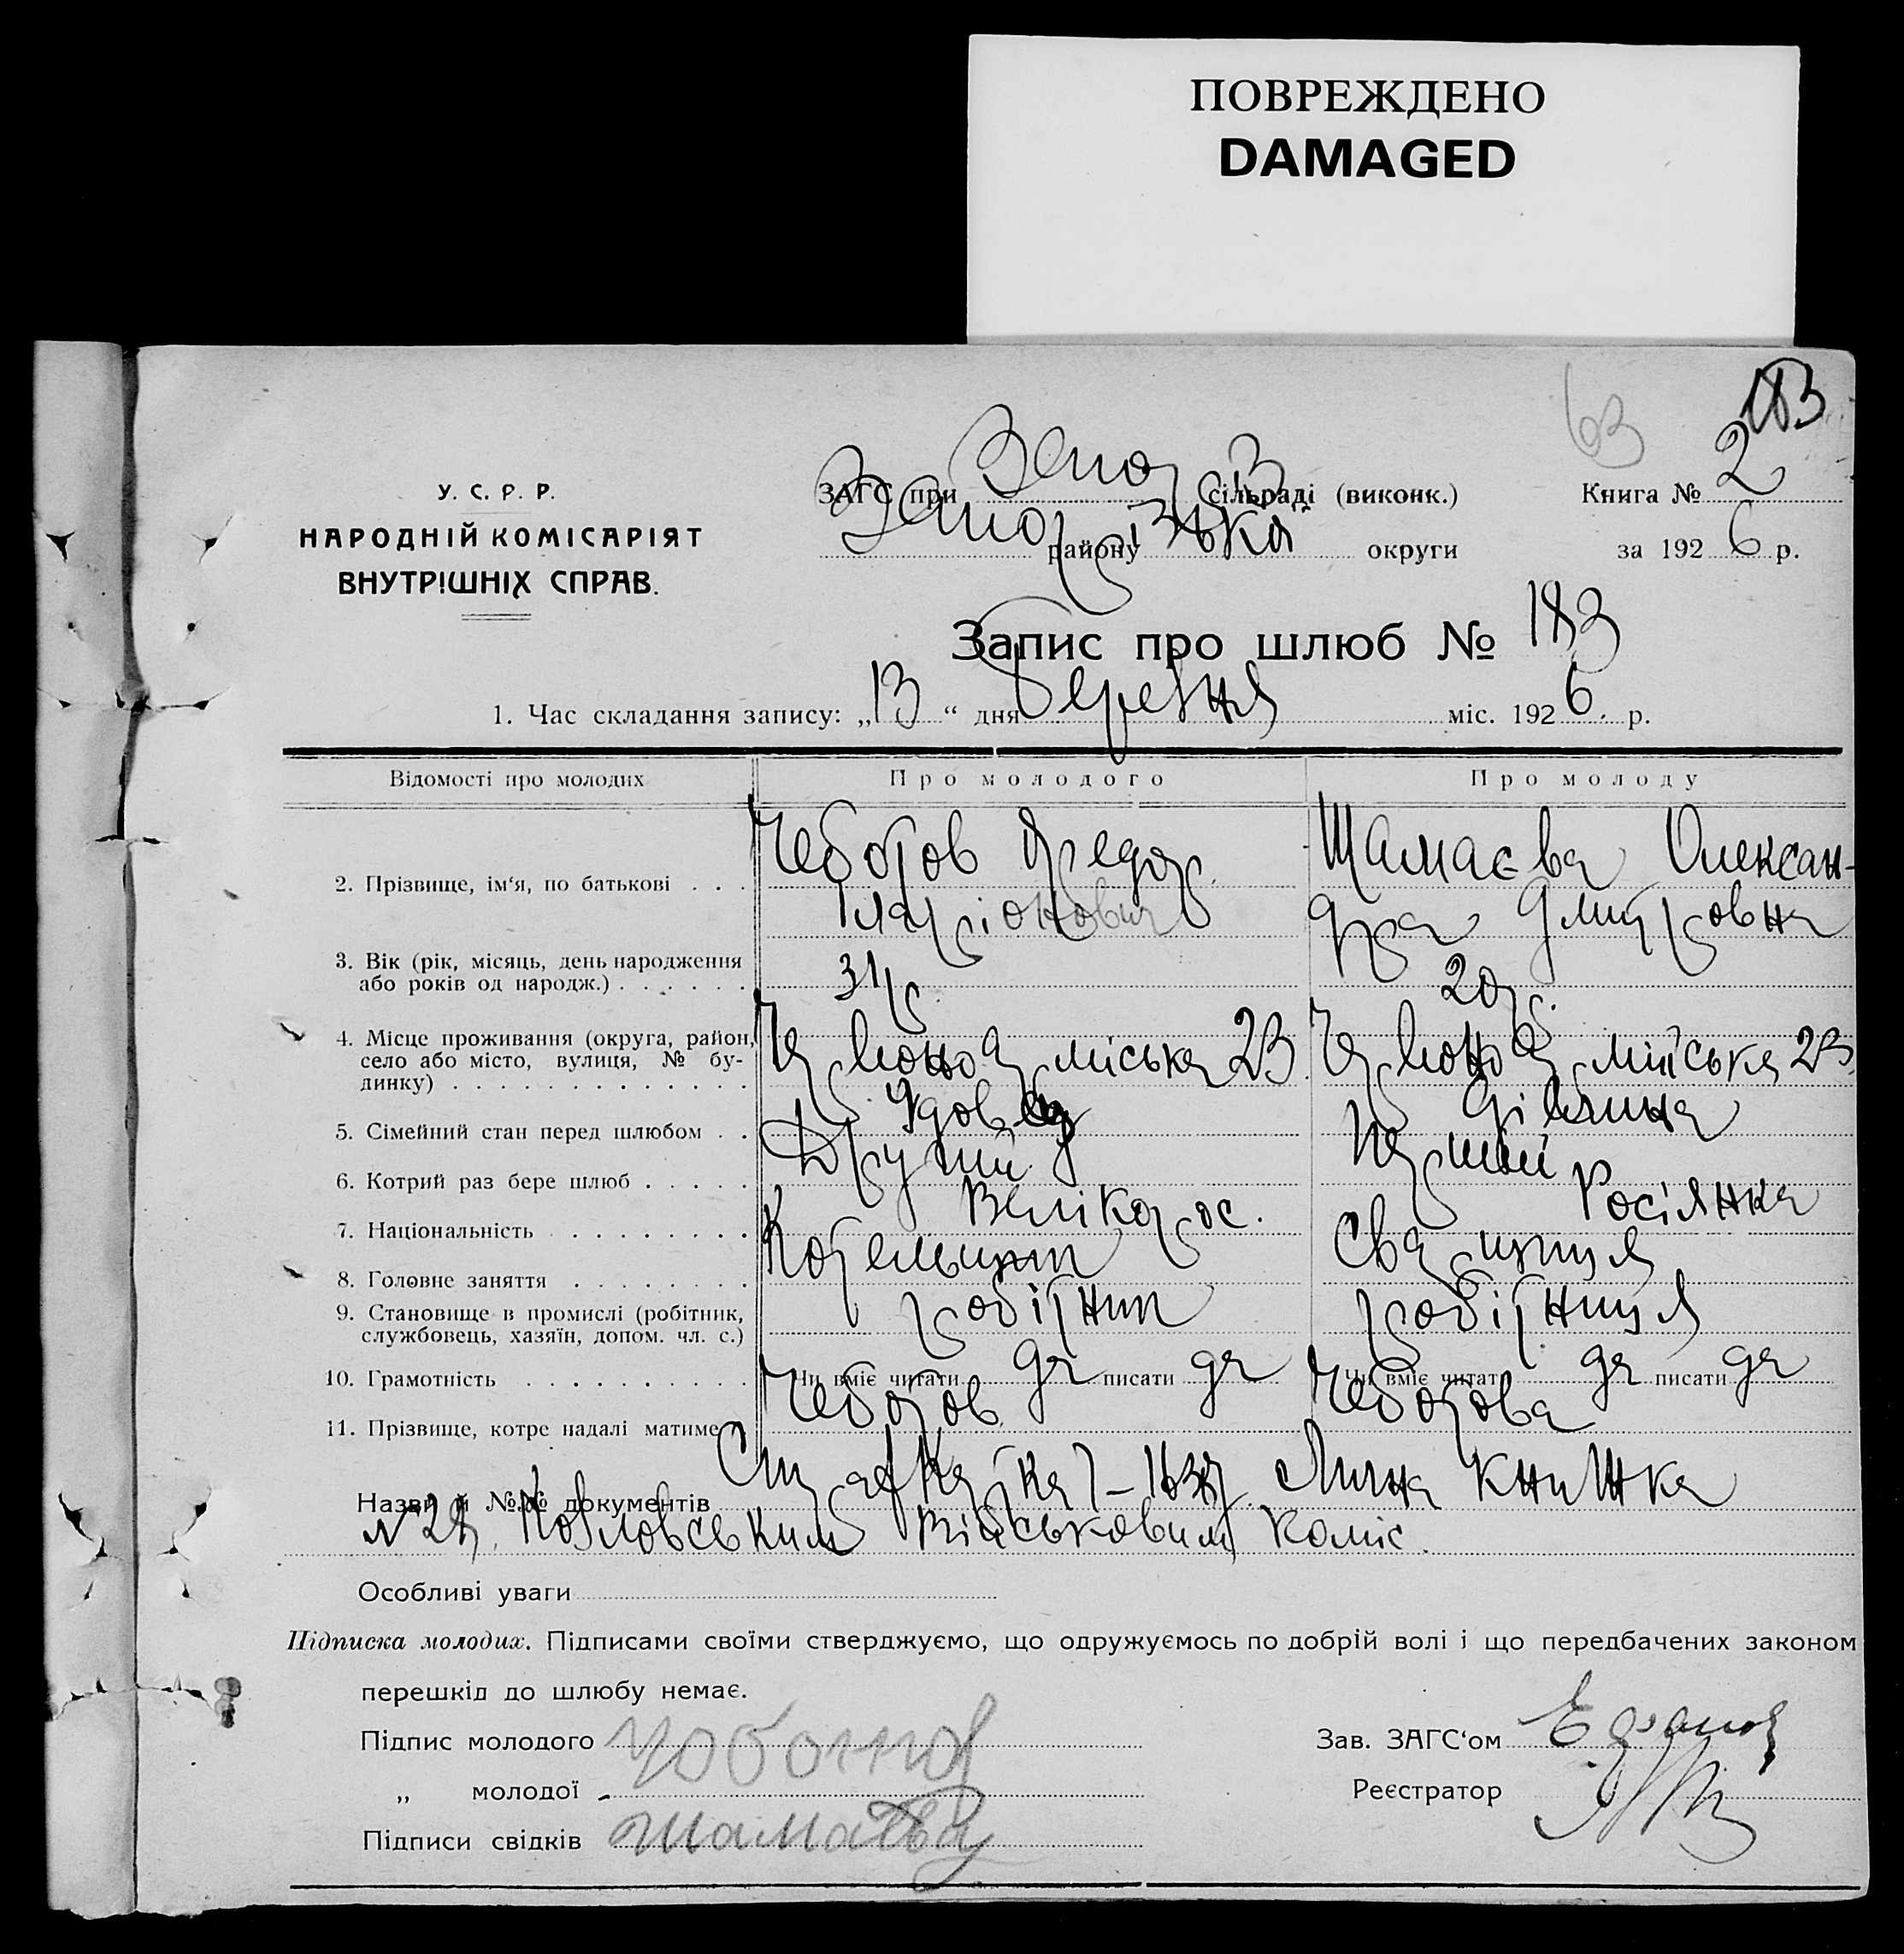 ПОВРЕЖДЕНО
DAMAGED
63
183
У. С. Р. Р.
НАРОДНІЙ КОМІСАРІЯТ
ВНУТРІШНІХ СПРАВ.
ЗАГС при сільраді (виконк.)
Книга № 2
району округи
за 1926 р.
Запис про шлюб № 183
1. Час складання запису: „13“ дня березня міс. 1926. р.
Відомості про молодих
Про молодого
Про молоду
2. Прізвище, ім‘я, по батькові . . .
Чеботов Федор
Іларіонович
Шамаєва Олексан-
дра Дмитровна
3. Вік (рік, місяць, день народження
або років од народж.) . . . . . .
31 р.
20 р.
4. Місце проживання (округа, район,
село або місто, вулиця, № бу-
динку) . . . . . . . . . . . . .
міська 23
міська 23
5. Сімейний стан перед шлюбом . .
Удовец
Дівчина
6. Котрий раз бере шлюб . . . . .
Другий
Перший
7. Національність . . . . . . . .
Великорос.
Росіянка
8. Головне заняття . . . . . . . .
Котельщик
9. Становище в промислі (робітник,
службовець, хазяїн, допом. чл. с.)
робітник
робітниця
10. Грамотність . . . . . . . . . .
Чи вміє читати да писати да
Чи вміє читати да писати да
11. Прізвище, котре надалі матиме
Чеботов
Чеботова
Назви й №№ документів Лична книжка
Козловським Військовим Коміс.
Особливі уваги
Підписка молодих. Підписами своїми стверджуємо, що одружуємось по добрій волі і що передбачених законом
перешкід до шлюбу немає.
Підпис молодого Чоботов
„ молодої Шамаева
Підписи свідків
Зав. ЗАГС‘ом
Реєстратор